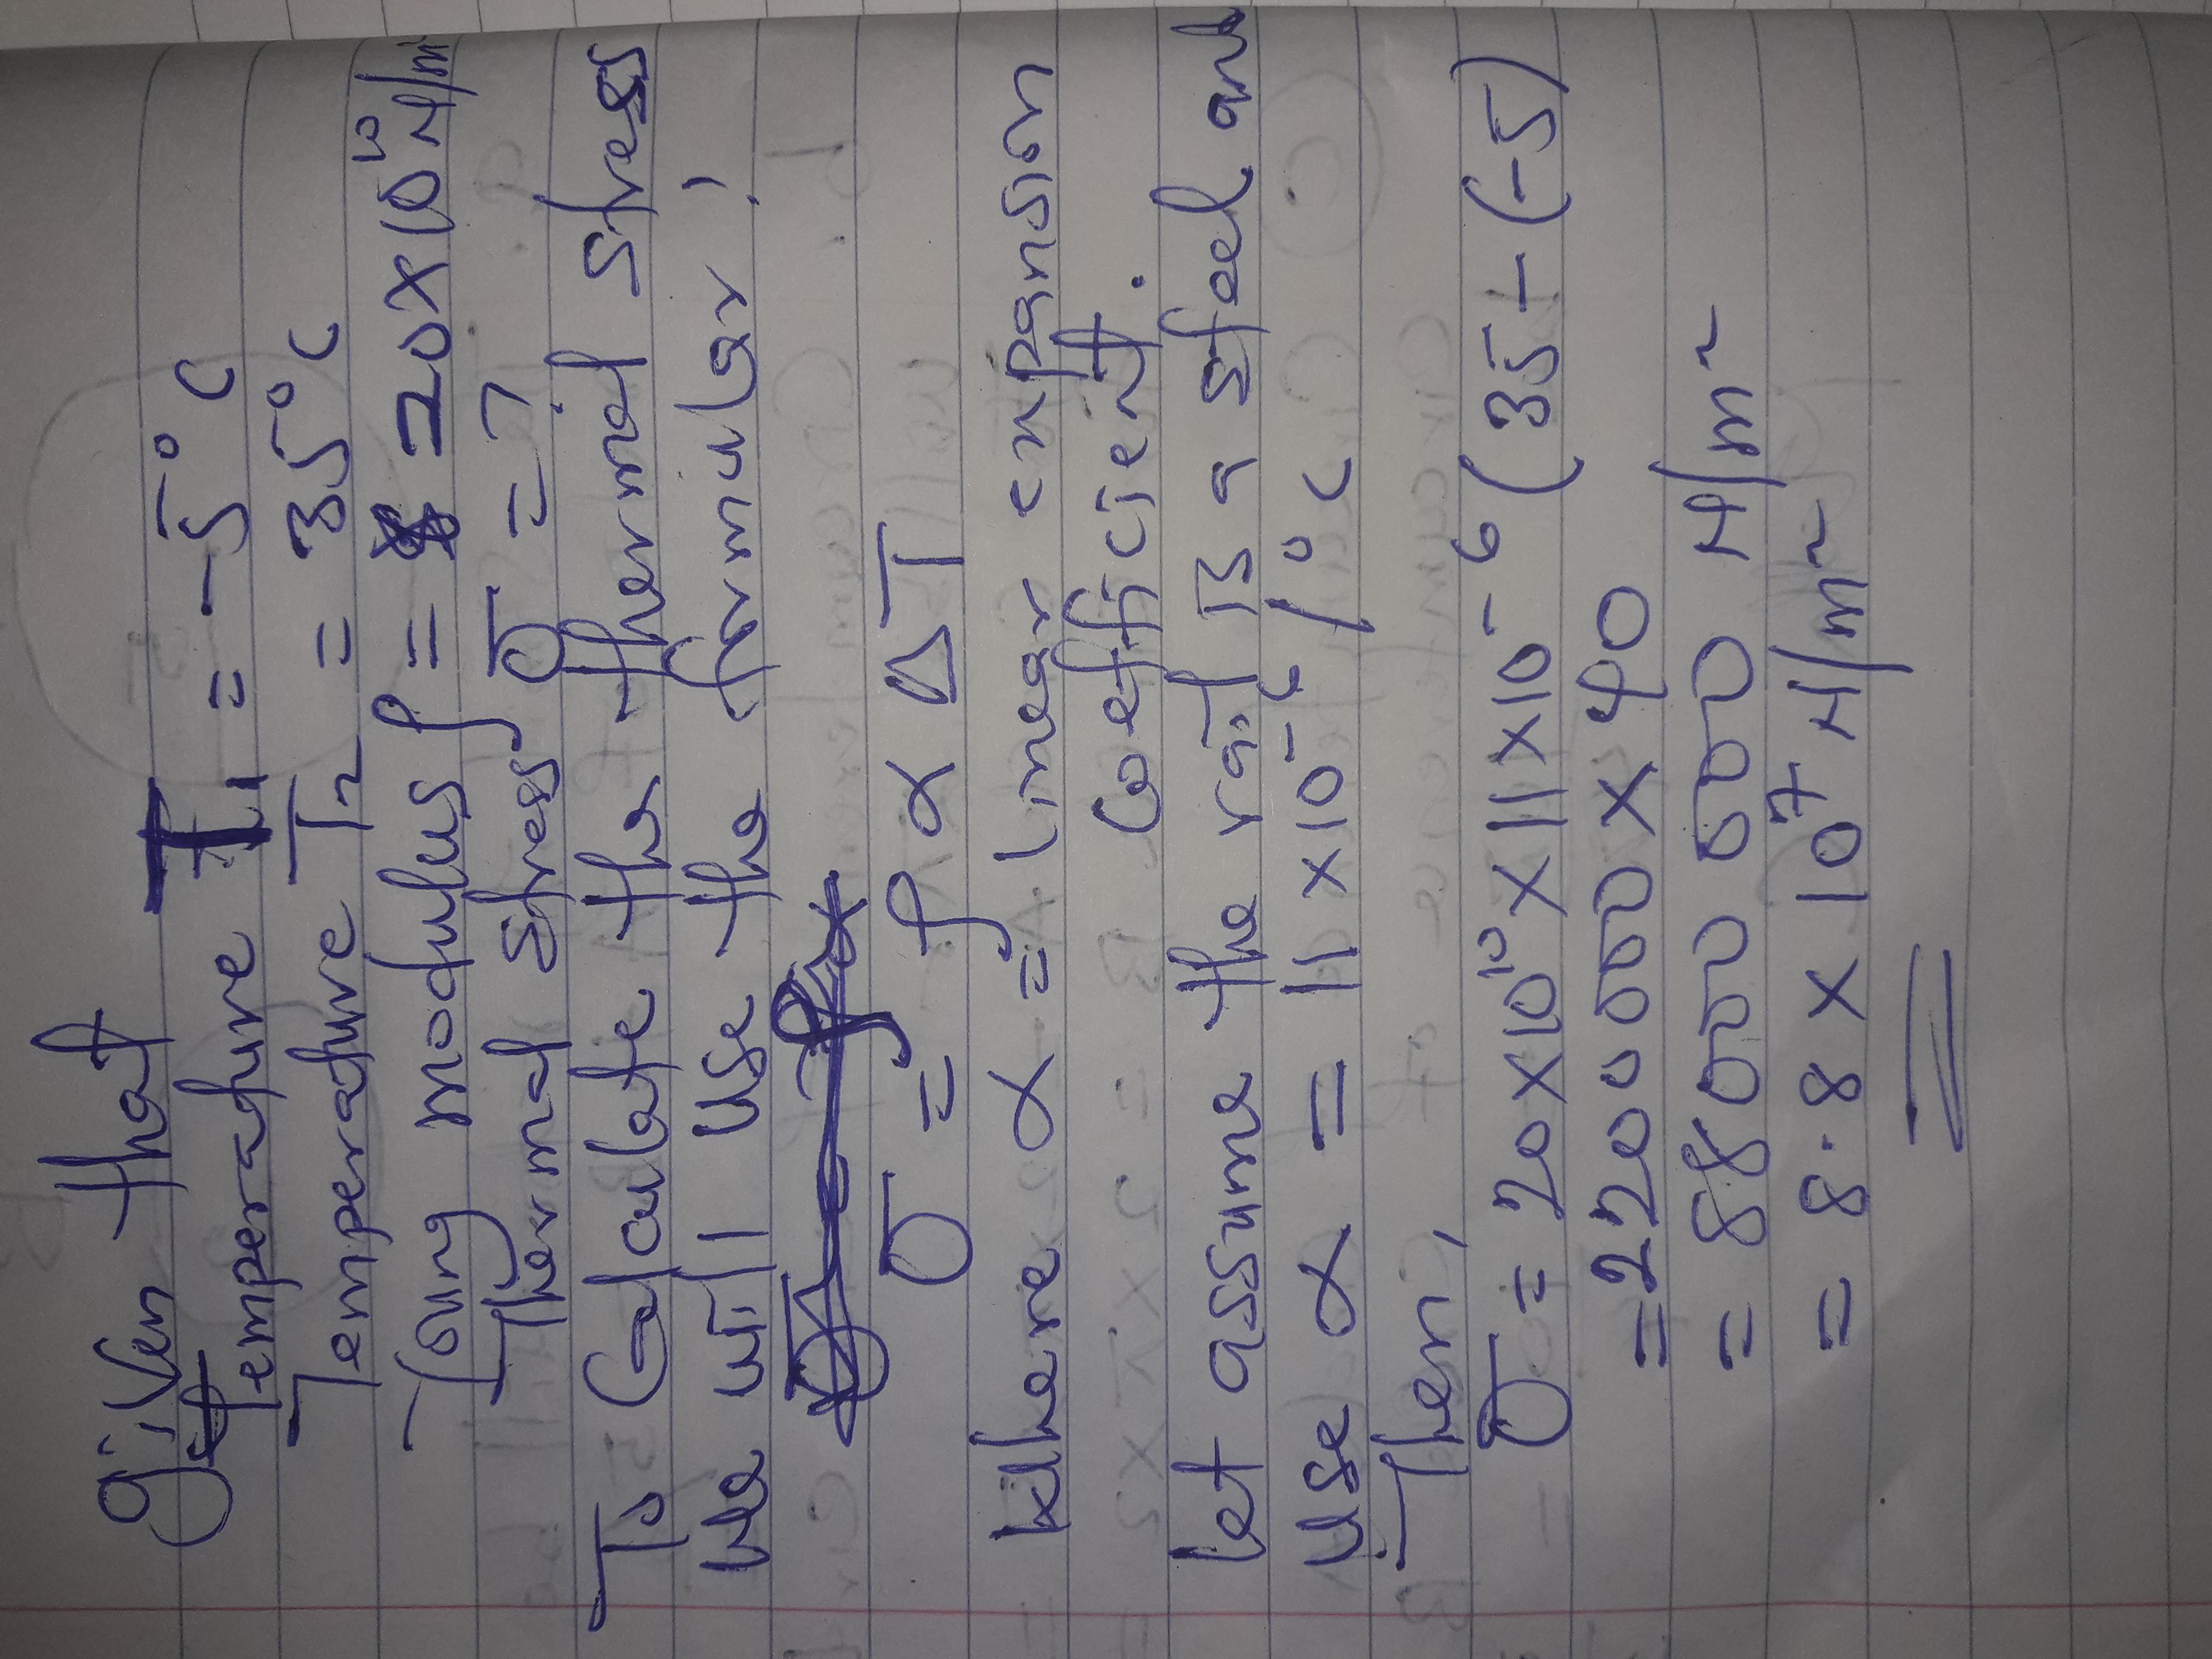 given that
Temperature T₁ = -5°C
Temperature T₂ = 35°C
Young modulus ρ = 20×10¹⁰ N/m²
Thermal stress σ = ?
To Calculate the thermal stress
we will use the formular;
σ = ρ α ΔT
Where α = linear expansion
Coefficient.
let assume the rail is a steel and
use α = 11 × 10⁻⁶/°C
Then,
σ = 20×10¹⁰ × 11×10⁻⁶ (35-(-5)
= 2200 000 × 40
= 88000 000 N/m²
= 8.8 × 10⁷ N/m²